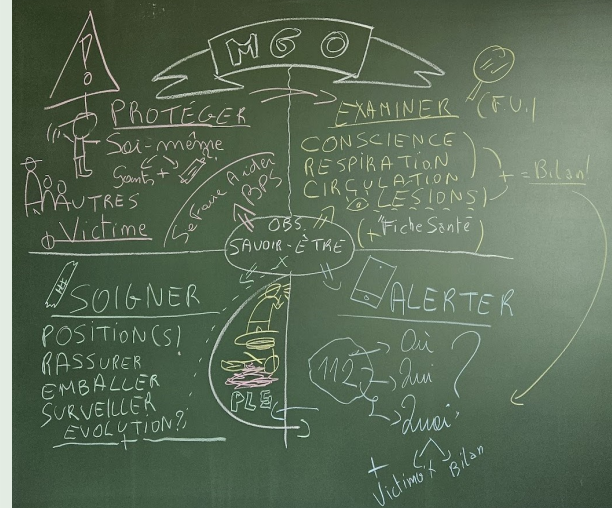 MGO
PROTÉGER
Soi-même
Gants +
AUTRES
Victime
Se Faire Aider
BPS
EXAMINER
(F.U.)
CONSCIENCE
RESPIRATION
CIRCULATION
LÉSIONS)
+ = Bilan!
(+ "Fiche Santé")
OBS.
SAVOIR-ÊTRE
SOIGNER
POSITION(S)
RASSURER
EMBALLER
SURVEILLER
EVOLUTION?
+
PLS
ALERTER
112
Où
Qui
Quoi
?
+
Victime + Bilan